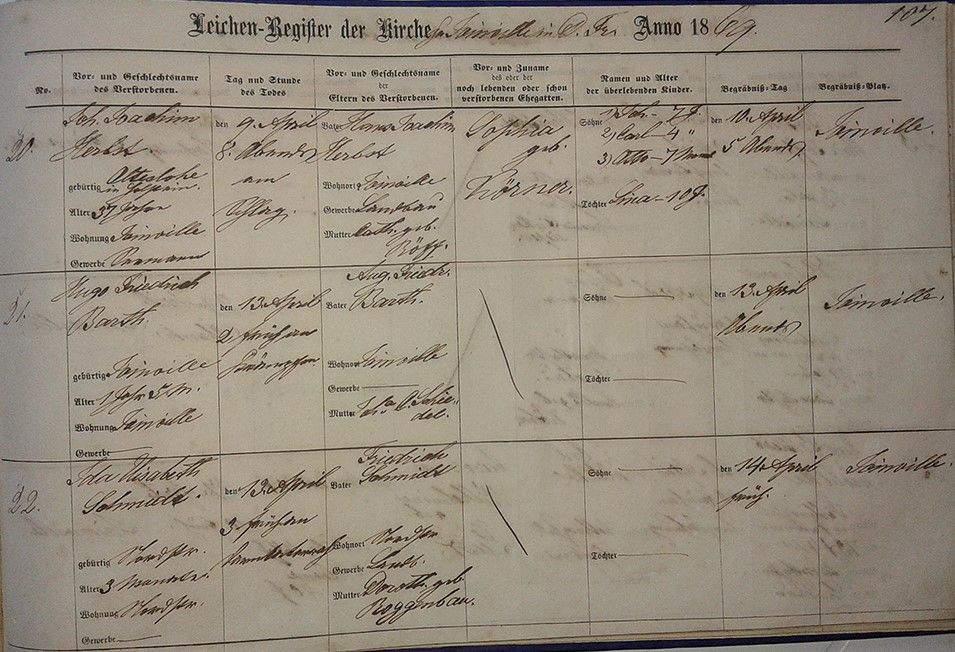 107.
Leichen-Register der Kirche zu Joinville in D. Fr. Anno 18 69.
No.
Vor- und Geschlechtsname
des Verstorbenen.
Tag und Stunde
des Todes
Vor- und Geschlechtsname
der
Eltern des Verstorbenen.
Vor- und Zuname
des oder der
noch lebenden oder schon
verstorbenen Ehegatten.
Namen und Alter
der überlebenden Kinder.
Begräbniß-Tag
Begräbniß-Platz.
20.
Joh. Joachim
Herbst
gebürtig Oldesloke
in Holstein.
Alter 37 Jahre
Wohnung Joinville
Gewerbe
den 9. April
8. Abends
am
Schlag.
Vater Hans Joachim
Herbst
Wohnort Joinville
Gewerbe Landbau
Mutter Cath. geb.
Röff.
Sophia
geb.
Körner.
Söhne 1) Joh. — 7 J.
2) Carl — 4 "
3) Otto — 7 Mon.
Töchter Lina — 10 J.
den 10. April
5 Abends
Joinville.
21.
Hugo Friedrich
Barth.
gebürtig Joinville
Alter 1 Jahr 5 M.
Wohnung Joinville
Gewerbe
den 13. April
2 früh an
Vater Aug. Friedr.
Barth.
Wohnort Joinville
Gewerbe —
Mutter
Söhne —
Töchter —
den 13. April
Abends
Joinville.
22.
Ida Elisabeth
Schmidt.
gebürtig Nordstr.
Alter 3 Monate.
Wohnung Nordstr.
Gewerbe —
den 13. April
3 früh an
Vater Friedrich
Schmidt
Wohnort Nordstr
Gewerbe Landb.
Mutter Doroth. geb
Roggenbau.
Söhne —
Töchter —
den 14. April
früh.
Joinville.